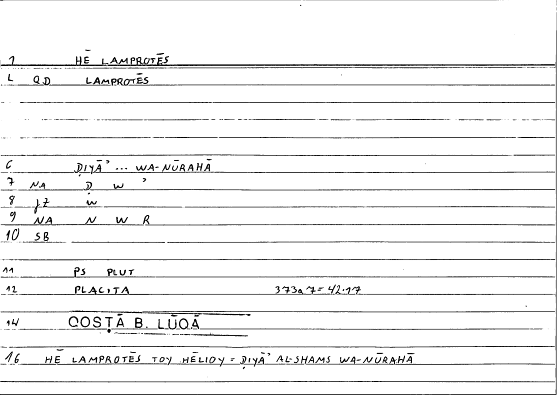 1 HĒ LAMPROTĒS
L QD LAMPROTĒS
6 ḌIYĀʾ ... WA-NŪRAHĀ
7 NA Ḍ W ʾ
8 JZ W
9 NA N W R
10 SB
11 PS PLUT
12 PLACITA 373a7=42.17
14 COSṬĀ B. LŪQĀ
16 HĒ LAMPROTĒS TOY HĒLIOY = ḌIYĀʾ AL-SHAMS WA-NŪRAHĀ